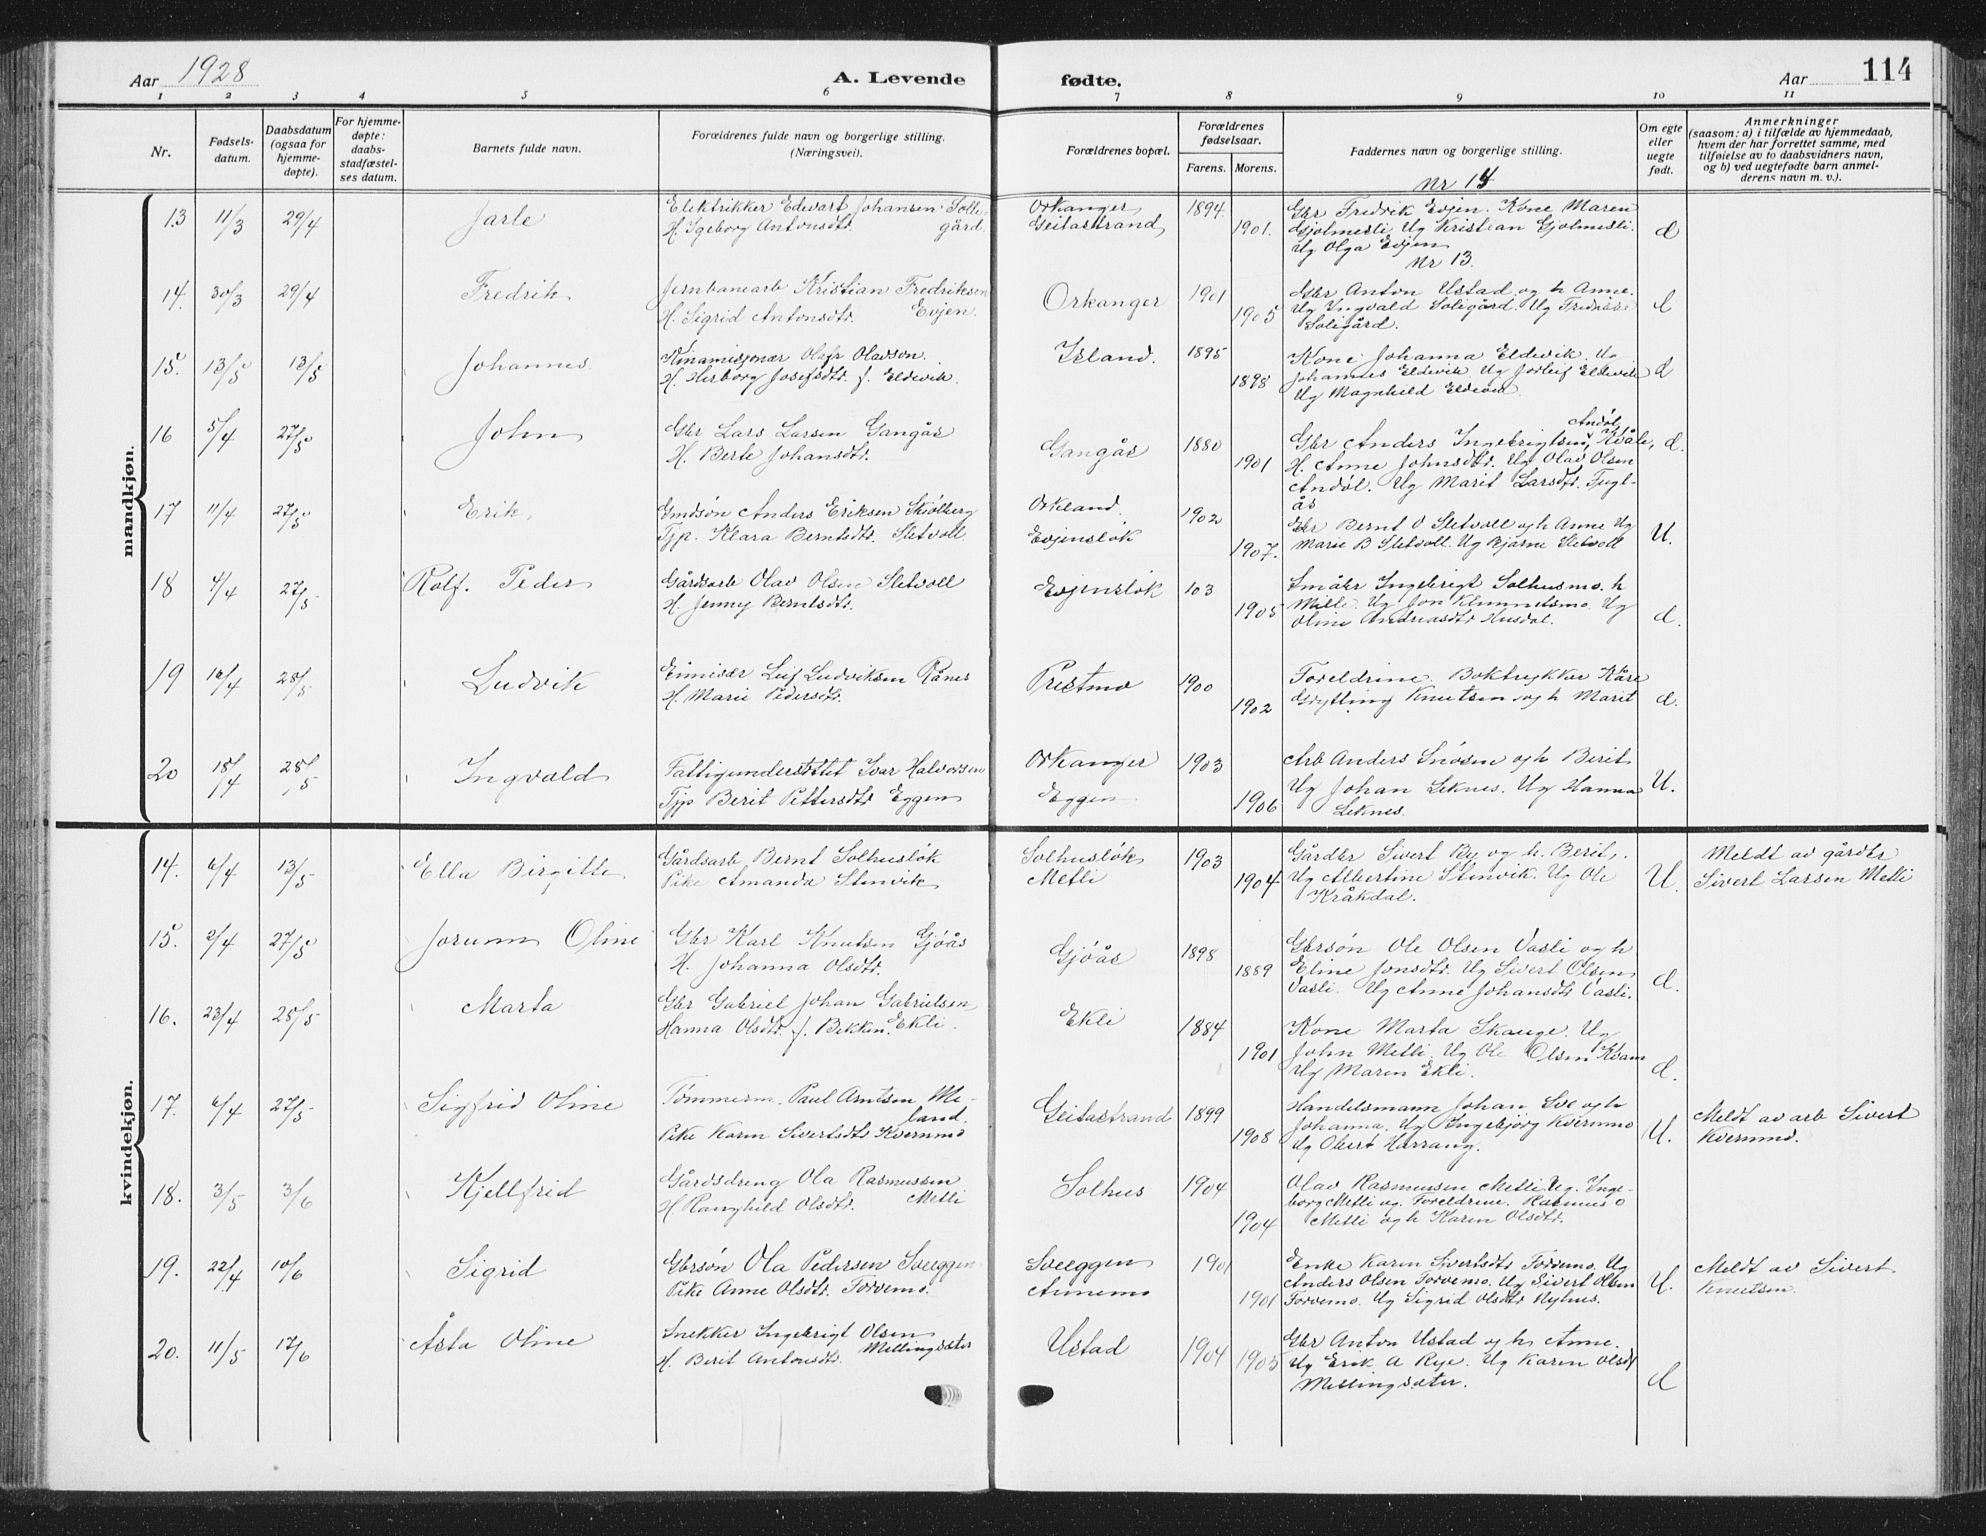 Aar 1928
A. Levende fødte.
Aar
114
1 2 3 4 5 6 7 8 9 10 11
Nr.
Fødsels-
datum.
Daabsdatum
(ogsaa for
hjemme-
døpte).
For hjemme-
døpte:
daabs-
stadfæstel-
ses datum.
Barnets fulde navn.
Forældrenes fulde navn og borgerlige stilling.
(Næringsvei).
Forældrenes bopæl.
Forældrenes
fødselsaar.
Farens. Morens.
Faddernes navn og borgerlige stilling.
Om egte
eller
uegte
født.
Anmerkninger
(saasom: a) i tilfælde av hjemmedaab,
hvem der har forrettet samme, med
tilføielse av to daabsvidners navn,
og b) ved uegtefødte barn anmel-
derens navn m. v.).
mandkjøn.
Nr 14
13 11/3 29/4 Jarle
Elektrikker Edvart Johansen Solle-
H. Igeborg Antonsdtr. gård.
Orkanger
Geitastrand
1894. 1901.
Gbr Fredrik Evjen. Kone Maren
Gjølmesli. Ug Kristian Gjølmesli.
Ug Olga Evjen
Nr 13.
14. 30/3 29/4 Fredrik
Jernbanearb Kristian Fredriksen
H. Sigrid Antonsdtr. Evjen.
Orkanger 1901 1905
Gbr Anton Ustad og h Anne.
Ug Ingvald Soligård. Ug Fredrikke
Soligård.
15. 13/5 13/5 Johannes.
Kinamisjonær Olafr Olavson.
H. Herborg Josefsdtr. f. Eldevik.
Island. 1895 1898
Kone Johanna Eldevik. Ug
Johannes Eldevik Ug Jorleif Eldevik
Ug Magnhild Eldevik.
16 5/4 27/5 John
Gbr Lars Larsen Gangås
H. Berte Johansdtr.
Gangås 1880 1901
Andøl
Gbr Anders Ingebrigtsen Kvåle,
H. Anne Johnsdtr. Ug Olav Olsen
Andøl. Ug Marit Larsdtr. Fugl-
ås
17 11/4 27/5 Erik
Gmdsøn Anders Eriksen Skjølberg
Tjp. Klara Berntsdtr. Sletvoll
Orkland.
Evjensløk
1902 1907.
Gbr Bernt O Sletvoll og h Anne Ug
Marie B Sletvoll. Ug Bjarne Sletvoll
U.
18 4/4 27/5 Rolf. Peder
Gårdsarb Olav Olsen Sletvoll
H. Jenny Berntsdtr.
Evjensløk 103 1905
Småbr Ingebrigt Solhusmo. h
Mille. Ug Jon Klemmetsmo. Ug
Oline Andreasdtr Husdal.
19 16/4 28/5 Ludvik
Leif Ludviksen Rånes
H. Marie Pedersdtr.
Prestmo 1900 1902
Foreldrine. Boktrykker Kåre
Grytling Knutsen og h Marit
20 18/4 28/5 Ingvald
Fattigunderstøttet Ivar Halvorsen
Tjp Berit Pettersdtr Eggen
Orkanger
Eggen
1903 1906
Arb Anders Snøsen og h Berit
Ug Johan Leknes. Ug Hanna
Leknes.
U.
kvindekjøn.
14. 6/4 13/5 Ella Birgitte
Gårdsarb Bernt Solhusløk
Pike Amanda Stenvik
Solhusløk
Metli
1903 1904
Gårdbr Sivert By og h. Berit.
Ug Albertine Stenvik. Ug Ole
Kråkdal.
U.
Meldt av gårdbr
Sivert Larsen Metli
15. 2/4 27/5 Jorunn Oline
Gbr Karl Knutsen Gjøås
H. Johanna Olsdtr.
Gjøås 1898 1889
Gbrsøn Ole Olsen Vasli og h
Eline Jonsdtr. Ug Sivert Olsen
Vasli. Ug Anne Johansdtr Vasli.
16. 23/4 28/5 Marta
Gbr Gabriel Johan Gabrielsen
Hanna Olsdtr. f. Bekken. Ekli.
Ekli 1884 1901
Kone Marta Skauge. Ug
John Metli. Ug Ole Olsen Kvam
Ug Maren Ekli.
17. 6/4 27/5 Sigfrid Oline
Tømmerm. Paul Arntsen Me-
land.
Pike Karen Sivertsdtr Kvernmo
Geitastrand 1899 1908
Handelsmann Johan Sve og h
Johanna. Ug Ingebjørg Kvernmo
Ug Obert Harrang.
U.
Meldt av arb Sivert
Kvernmo.
18. 3/5 3/6 Kjellfrid
Gårdsdreng Ola Rasmussen
H. Ranghild Olsdtr. Metli
Solhus 1904 1904
Olav Rasmussen Metli. Ug. Inge-
borg Metli ug. Foreldrene. Rasmus O
Metli og h Karen Olsdtr.
19. 22/4 10/6 Sigrid
Gbrsøn Ola Pedersen Sveeggen
Pike Anne Olsdtr. Torvemo.
Sveeggen
Annemo
1901 1901
Enke Karen Sivertsdtr Torvmo. Ug
Anders Olsen Torvemo. Ug Sivert Olsen
Torvemo. Ug Sigrid Olsdtr Nyhus.
U.
Meldt av Sivert
Knutsen.
20. 11/5 17/6 Åsta Oline
Snekker Ingebrigt Olsen
H. Berit Antonsdtr. Mellingsæter
Ustad 1904 1905
Gbr Anton Ustad og h Anne.
Ug Erik A Rye. Ug Karen Olsdt
Mellingsæter.